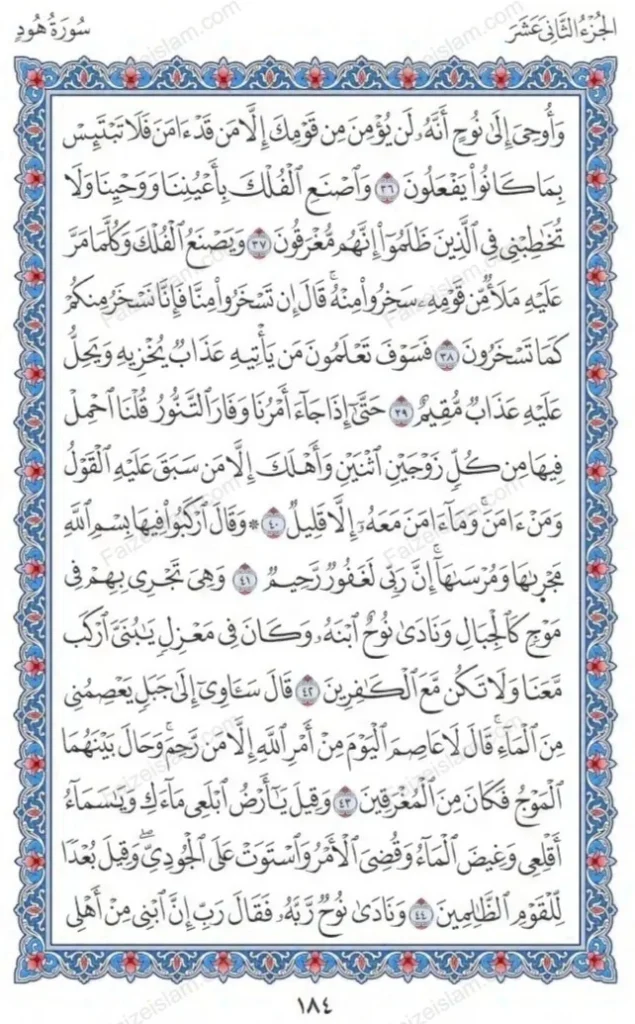 الجُزْءُ الثَّانِيَ عَشَرَ
سُورَةُ هُودٍ
وَأُوحِىَ إِلَىٰ نُوحٍ أَنَّهُۥ لَن يُؤْمِنَ مِن قَوْمِكَ إِلَّا مَن قَدْ ءَامَنَ فَلَا تَبْتَئِسْ
بِمَا كَانُوا۟ يَفْعَلُونَ ٣٦ وَٱصْنَعِ ٱلْفُلْكَ بِأَعْيُنِنَا وَوَحْيِنَا وَلَا
تُخَٰطِبْنِى فِى ٱلَّذِينَ ظَلَمُوٓا۟ إِنَّهُم مُّغْرَقُونَ ٣٧ وَيَصْنَعُ ٱلْفُلْكَ وَكُلَّمَا مَرَّ
عَلَيْهِ مَلَأٌ مِّن قَوْمِهِۦ سَخِرُوا۟ مِنْهُ ۚ قَالَ إِن تَسْخَرُوا۟ مِنَّا فَإِنَّا نَسْخَرُ مِنكُمْ
كَمَا تَسْخَرُونَ ٣٨ فَسَوْفَ تَعْلَمُونَ مَن يَأْتِيهِ عَذَابٌ يُخْزِيهِ وَيَحِلُّ
عَلَيْهِ عَذَابٌ مُّقِيمٌ ٣٩ حَتَّىٰٓ إِذَا جَآءَ أَمْرُنَا وَفَارَ ٱلتَّنُّورُ قُلْنَا ٱحْمِلْ
فِيهَا مِن كُلٍّ زَوْجَيْنِ ٱثْنَيْنِ وَأَهْلَكَ إِلَّا مَن سَبَقَ عَلَيْهِ ٱلْقَوْلُ
وَمَنْ ءَامَنَ ۚ وَمَآ ءَامَنَ مَعَهُۥٓ إِلَّا قَلِيلٌ ٤٠ * وَقَالَ ٱرْكَبُوا۟ فِيهَا بِسْمِ ٱللَّهِ
مَجْر۪ىٰهَا وَمُرْسَىٰهَآ ۚ إِنَّ رَبِّى لَغَفُورٌ رَّحِيمٌ ٤١ وَهِىَ تَجْرِى بِهِمْ فِى
مَوْجٍ كَٱلْجِبَالِ وَنَادَىٰ نُوحٌ ٱبْنَهُۥ وَكَانَ فِى مَعْزِلٍ يَٰبُنَىَّ ٱرْكَب
مَّعَنَا وَلَا تَكُن مَّعَ ٱلْكَٰفِرِينَ ٤٢ قَالَ سَـَٔاوِىٓ إِلَىٰ جَبَلٍ يَعْصِمُنِى
مِنَ ٱلْمَآءِ ۚ قَالَ لَا عَاصِمَ ٱلْيَوْمَ مِنْ أَمْرِ ٱللَّهِ إِلَّا مَن رَّحِمَ ۚ وَحَالَ بَيْنَهُمَا
ٱلْمَوْجُ فَكَانَ مِنَ ٱلْمُغْرَقِينَ ٤٣ وَقِيلَ يَٰٓأَرْضُ ٱبْلَعِى مَآءَكِ وَيَٰسَمَآءُ
أَقْلِعِى وَغِيضَ ٱلْمَآءُ وَقُضِىَ ٱلْأَمْرُ وَٱسْتَوَتْ عَلَى ٱلْجُودِىِّ ۖ وَقِيلَ بُعْدًا
لِّلْقَوْمِ ٱلظَّٰلِمِينَ ٤٤ وَنَادَىٰ نُوحٌ رَّبَّهُۥ فَقَالَ رَبِّ إِنَّ ٱبْنِى مِنْ أَهْلِى
١٨٤
Faizeislam.com